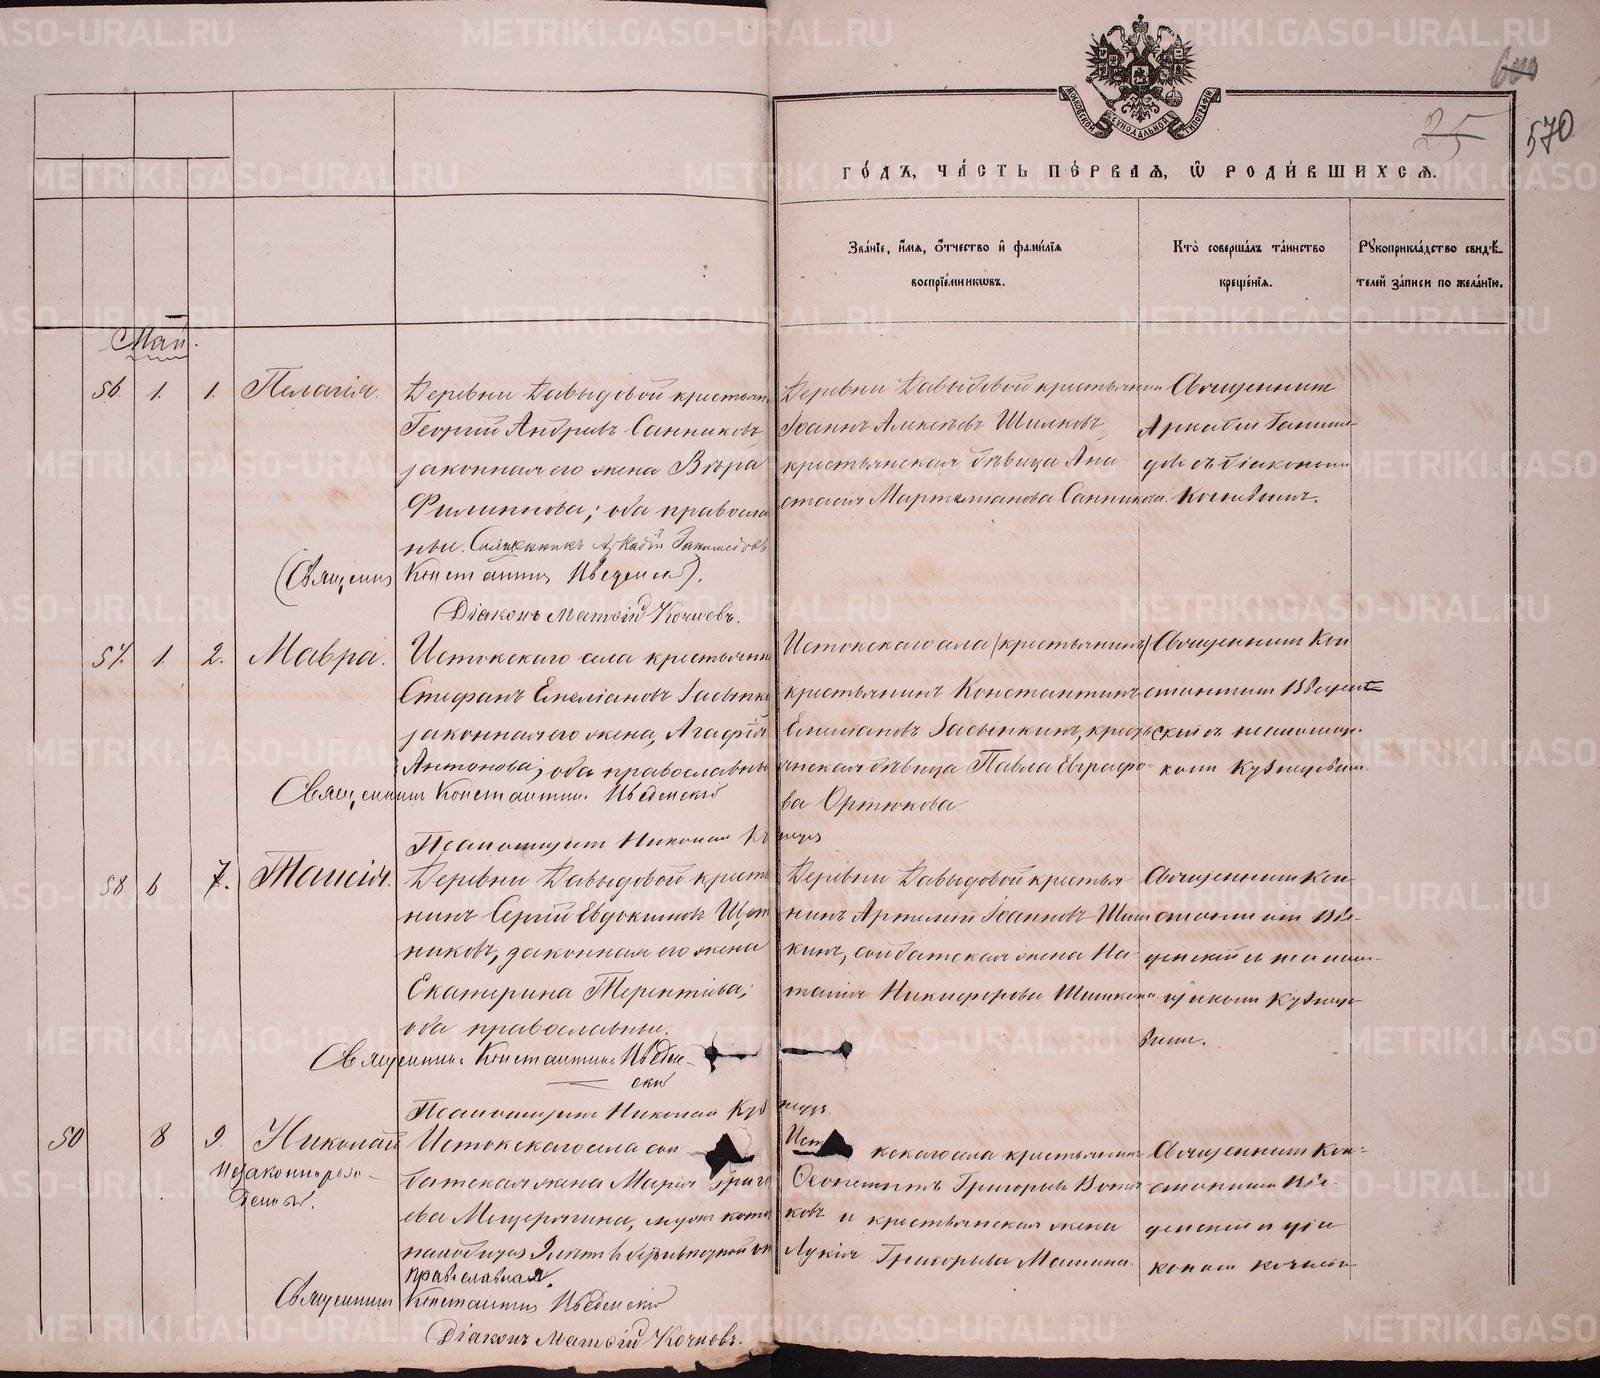 600
25
570
МОСКОВСКОЙ СѴНОДАЛЬНОЙ ТИПОГРАФІИ
ГО́ДЪ, ЧА́СТЬ ПЕ́РВАѦ, Ѡ҆ РОДИ́ВШИХСѦ.
Зва́нїе, и҆́мѧ, ѻ҆́тчество и҆ фами́лїѧ
воспрїе́мникѡвъ.
Кто̀ соверша́лъ та́инство
креще́нїѧ.
Рꙋкоприкла́дство свидѣ́-
телей за́писи по жела́нїю.
Май.
56. 1. 1. Пелагія.
Деревни Давыдовой крестьян
Георгій Андреевъ Санниковъ,
законная его жена Вѣра
Филиппова; оба православ
ные. Священникъ Аркадій
(Священникъ Константинъ Введенскій).
Діаконъ Матѳій Кочневъ.
Деревни Давыдовой крестьянин
Іоаннъ Алексѣевъ Шишковъ,
крестьянская дѣвица Ана-
стасія Мартемьянова Санникова.
Священник
Аркадій
съ діакономъ
Кочневымъ.
57. 1. 2. Мавра.
Истокскаго села крестьянин
Стефанъ Емеліановъ Засыпки
законная его жена, Агафія
Антонова; оба православны
Священникъ Константинъ Введенскій
Псаломщикъ Николай Кузнецов
Истокскаго села (крестьянинъ)
крестьянинъ Константинъ
Емеліановъ Засыпкинъ, кресть
янская дѣвица Павла Евграфо-
ва Ортюкова.
Священник Кон
стантин Введен
скій съ псаломщи-
ком Кузнецовым.
58 6 7. Таисія.
Деревни Давыдовой крестья
нинъ Сергій Евдокимовъ
никовъ, законная его жена
Екатерина Терентьева;
оба православные.
Священникъ Константинъ Введен-
скій
Псаломщикъ Николай Кузнецъ.
Деревни Давыдовой крестья
нинъ Артемій Іоанновъ Шиш
кинъ, солдатская жена На-
талія Никифорова Шишкина
Священник Кон-
стантин Вве-
денскій съ псалом-
щиком Кузнецо-
вым.
50 8 9. Николай
Незаконнорож-
денный.
Истокскаго села сол
датская жена Марія Григо
ева Мещерягина, мужъ кото
православная.
Священникъ Константинъ Введенскій
Діаконъ Матѳій Кочневъ.
Истокскаго села крестьянинъ
Ѳеоктистъ Григорьевъ Вотя
ковъ и крестьянская жена
Лукія Григорьева Машина.
Священник Кон-
стантин Вве-
денскій и діа
коном Кочнев
METRIKI.GASO-URAL.RU